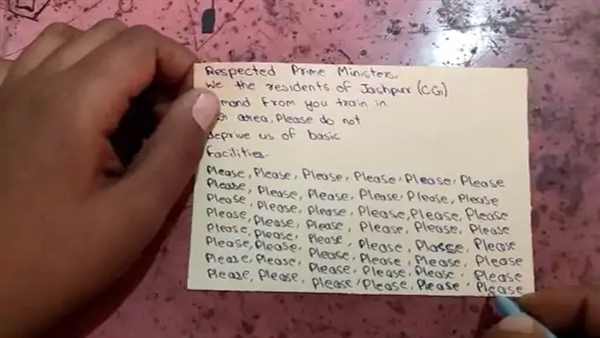 Respected Prime Minister,
We the residents of Jashpur (CG)
demand from you train in
area, Please do not
deprive us of basic
Facilities.
Please, Please, Please, Please, Please, Please
Please, Please, Please, Please, Please, Please
Please, Please, Please, Please, Please, Please
Please, Please, Please, Please, Please, Please
Please, Please, Please, Please, Please, Please
Please, Please, Please, Please, Please, Please
Please, Please, Please, Please, Please, Please
Please, Please, Please, Please, Please, Please